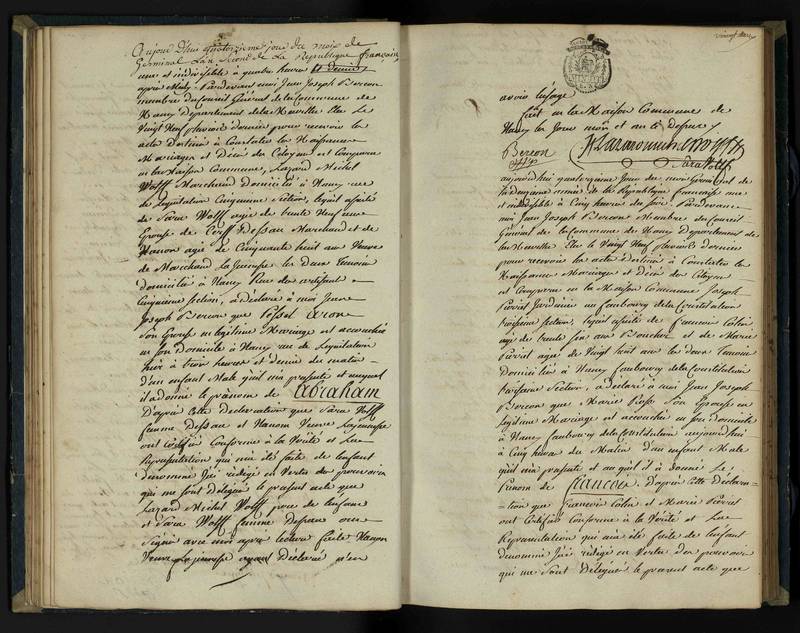 Aujourd'hui quatorzieme jour du mois de
Germinal L'an Second de La Republique française
une et indivisible à quatre heure et demie
apres Midy Pardevant moi Jean Joseph Bercon
membre du Conseil Général de la Commune de
Nancy Departement de la Meurthe Elu Le
Vingt Neuf pluviose dernier pour recevoir les
actes destinés à Constater les Naissances
Mariages et Décès des Citoyens est Comparu
en la Maison Commune, Lazard Michel
Wolff Marchand Domicilié à Nancy rue
de Legislation Cinquieme Section, lequel assisté
de Sara Wolff agée de trente Neuf ans
Epouse de Dessau Marchand et de
Hanon agée de Cinquante huit ans Veuve
de Marchand La Jeunesse les Deux temoins
domiciliés à Nancy Rue des artisans
Cinquieme Section, à Déclaré à moi Jean
Joseph Bercon que aron
Son Epouse en legitime Mariage est accouchée
en Son domicile à Nancy rue de Legislation
hier à trois heures et demie du matin
d'un enfant Male qu'il m'a presenté et auquel
il a donné le prenom de Abraham
D'apres Cette Declaration que Sara Wolff
femme Dessau et Hanon Veuve Lajeunesse
ont certifié Conforme à la Vérité et La
Representation qui m'a été faite de l'enfant
denommé J'ai redigé en Vertu des pouvoirs
qui me sont délégués le present acte que
Lazard Michel Wolff pere de l'enfant
et Sara Wolff femme Dessau ont
Signé avec moi apres lecture faite Hanon
Veuve Lajeunesse ayant Declaré n'en
avoir l'usage
fait en la Maison Commune de
Nancy les Jour mois et an de Dessus
Bercon
Sara Wolff
aujourd'hui quatorzieme Jour du mois Germinal de
la deuxieme année de la République française une
et indivisible à Cinq heures du soir, Pardevant
moi Jean Joseph Bercon Membre du Conseil
Général de la Commune de Nancy Departement de
la Meurthe Elu le Vingt Neuf pluviose dernier
pour recevoir les actes destinés à Constater les
Naissances Mariages et Décès des Citoyens
est Comparu en la Maison Commune Joseph
Pierret Jardinier au faubourg de la Constitution
section, lequel assisté de francois Colin
agé de trente six ans Boucher et de Marie
Pierret agée de Vingt huit ans les deux temoins
Domiciliés à Nancy faubourg de la Constitution
Section, a declaré à moi Jean Joseph
Bercon que Marie Son Epouse en
Legitime Mariage est accouchée en son domicile
à Nancy faubourg de la Constitution aujourd'hui
à Cinq heures du Matin d'un enfant Male
qu'il m'a presenté et auquel il à donné Le
Prenom de francois. D'après Cette Declara-
-tion que francois Colin et Marie Pierret
ont Certifié Conforme à la Vérité et La
Representation qui m'a été faite de l'enfant
denommé J'ai redigé en Vertu des pouvoirs
qui me Sont Délégués le present acte que